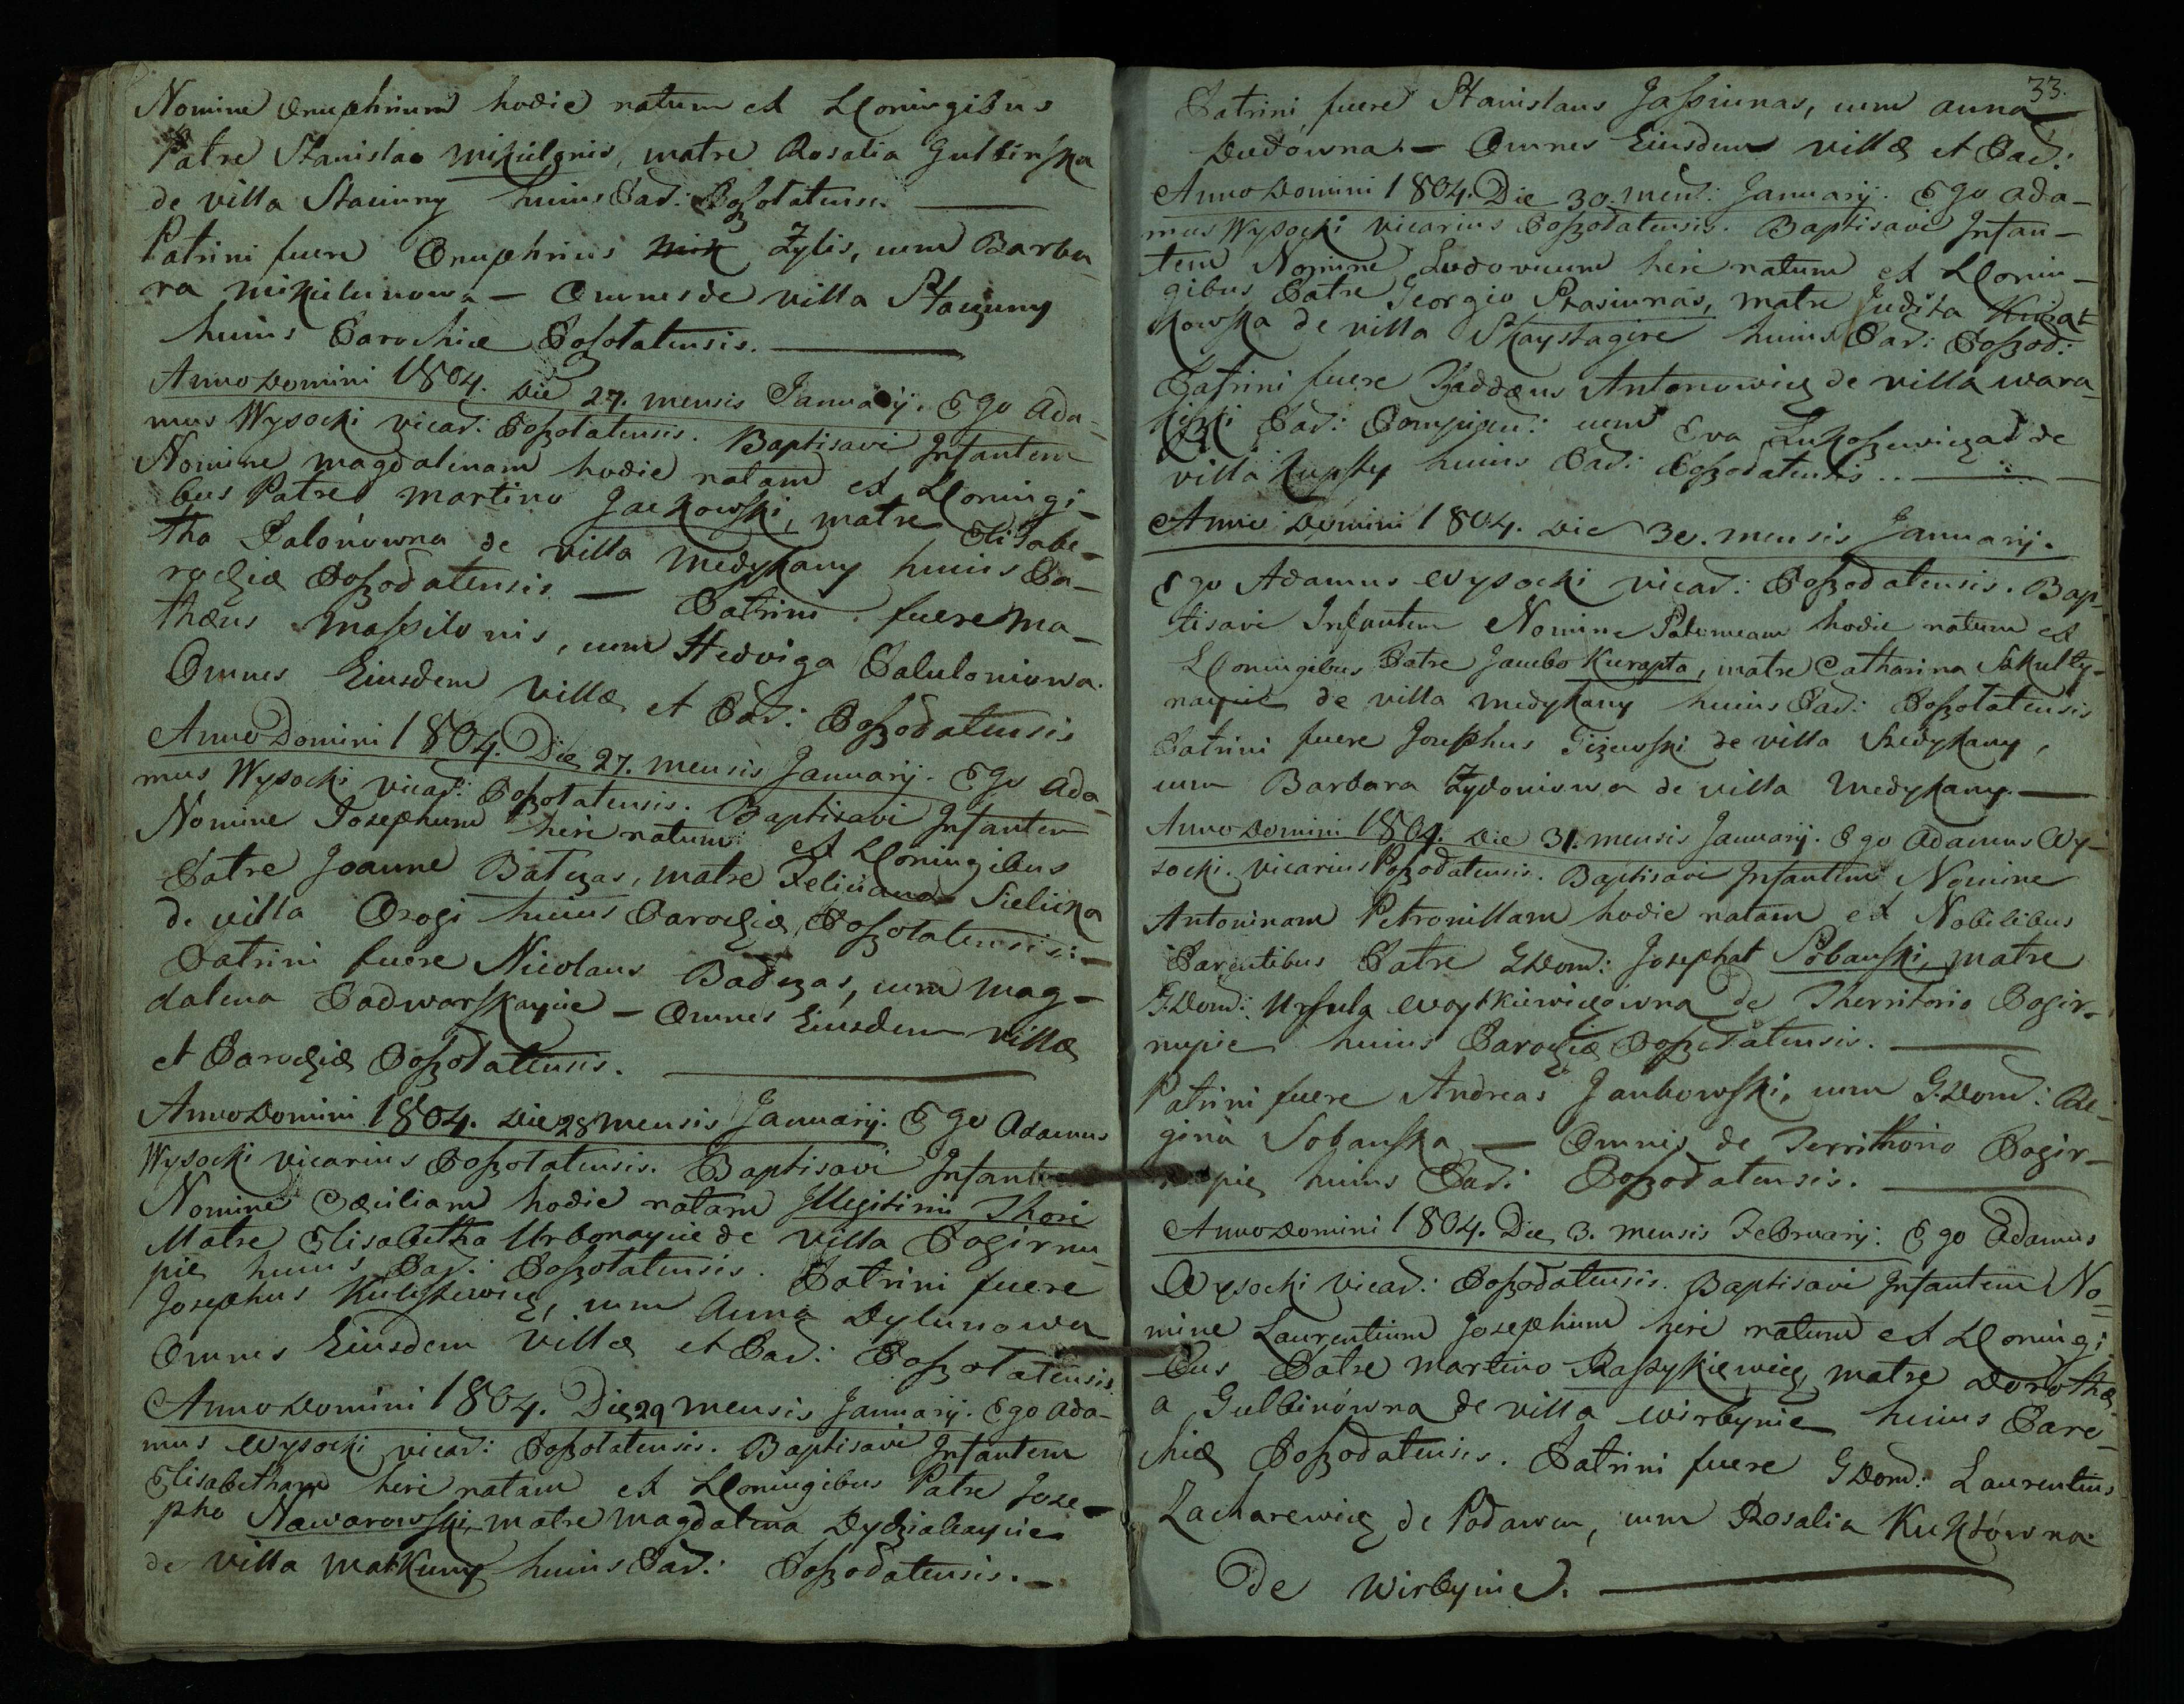 Nomine Onuphrium hodie natum ex LConiugibus
Patre Stanislao Mikulonis, matre Rosalia Gulbinska
de villa Staciuny huius Par: Poszolatensis.
Patrini fuere Onuphrius Zylis, cum Barba-
ra Mikulunowa — Omnes de villa Staciuny
huius Parochiæ Posolatensis.
Anno Domini 1804. Die 27. mensis January. Ego Ada-
mus Wysocki vicar: Poszolatensis. Baptisavi Infantem
Nomine Magdalenam hodie natam ex LConiugi-
bus Patre Martino Jackowski, matre Elisabe-
tha Palonowna de villa Medykany huius Pa-
rochiæ Poszodatensis — Patrini fuere Ma-
thæus Maszilonis, cum Hedviga Paluloniowa.
Omnes Eiusdem villæ et Par: Poszodatensis
Anno Domini 1804. Die 27. mensis January. Ego Ada-
mus Wysocki vicar: Poszolatensis. Baptisavi Infantem
Nomine Josephum heri natum ex LConiugibus
Patre Joanne Batzas, matre Feliciana Sielicka
de villa Ozogi huius Parochiæ Poszolatensis:—
Patrini fuere Nicolaus Badzas, cum Mag-
dalena Padwarskaycie — Omnes Eiusdem villæ
et Parochiæ Poszolatensis.
Anno Domini 1804. Die 28 mensis January. Ego Adamus
Wysocki vicarius Poszolatensis. Baptisavi Infantem
Nomine Cæciliam hodie natam Illegitimi Thori
Matre Elisabetha Urbonaycie de villa Pogirnu-
pie huius Par: Poszolatensis. Patrini fuere
Josephus Kuleszewicz, cum Anna Dylunowa
Omnes Eiusdem villæ et Par: Poszolatensis.
Anno Domini 1804. Die 29 mensis January. Ego Ada-
mus Wysocki vicar: Poszolatensis. Baptisavi Infantem
Elisabetham heri natam ex LConiugibus Patre Jose-
pho Nawarowski, matre Magdalena Dydzialaycie
de villa Matkuny huius Par: Poszodatensis.—
33.
Patrini fuere Stanislaus Jassiunas, cum Anna
Dudowna.— Omnes Eiusdem villæ et Par:
Anno Domini 1804. Die 30. mens: January. Ego Ada-
mus Wysocki vicarius Poszodatensis. Baptisavi Infan-
tem Nomine Ludovicum heri natum ex LConiu-
gibus Patre Georgio Stasiunas, matre Judita
kowska de villa Skaystagire huius Par: Poszod:
Patrini fuere Thaddæus Antonowicz de villa Wara-
Par: cum Eva Lukoszewiczad de
villa Kupsty huius Par: Poszodatensis..—
Anno Domini 1804. Die 30. mensis January.
Ego Adamus Wysocki vicar: Poszodatensis. Bap-
tisavi Infantem Nomine hodie natum ex
LConiugibus Patre Jacubo Kurapta, matre Catharina Sakulty-
naycie de villa Medykany huius Par: Poszolatensis
Patrini fuere Josephus Gizewski de villa Szedykany,
cum Barbara Zydoniowa de villa Medykany.—
Anno Domini 1804. Die 31. mensis January. Ego Adamus Wy-
socki. vicarius Poszodatensis. Baptisavi Infantem Nomine
Antoninam Petronillam hodie natam ex Nobilibus
Parentibus Patre GDom: Josephat Sobanski, matre
GDom: Ursula Woytkiewiczowna de Therritorio Pogir-
nupie huius Parochiæ Poszodatensis.
Patrini fuere Andreas Janbowski, cum G.Dom: Re-
gina Sobanska — Omnis de Territhorio Pogir-
nupie huius Par: Poszodatensis.
Anno Domini 1804. Die 3. mensis February: Ego Adamus
Wysocki vicar: Poszodatensis. Baptisavi Infantem No-
mine Laurentium Josephum heri natum ex LConiugi
bus Patre Martino Raszykiewicz, matre Dorothæ-
a Gulbinówna de villa Wirbynie huius Paro-
chiæ Poszodatensis. Patrini fuere GDom: Laurentius
Zacharewicz de Podawcn, cum Rosalia Kuktówna
De Wirbynie.